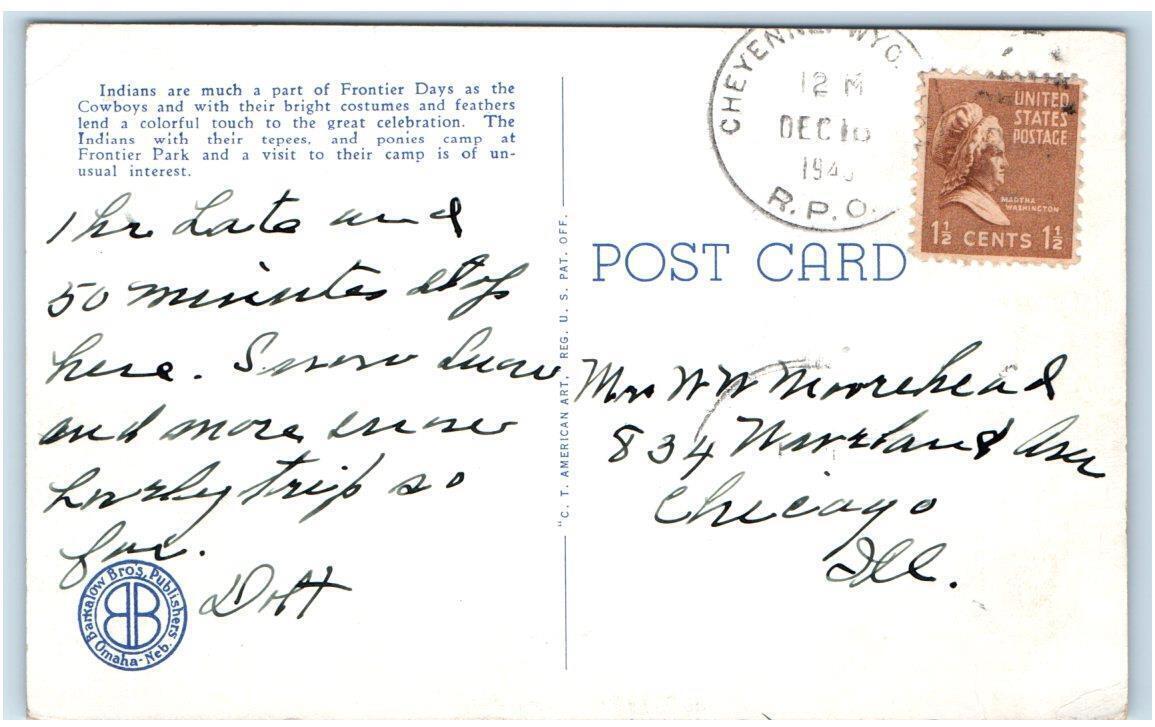 Indians are much a part of Frontier Days as the
Cowboys and with their bright costumes and feathers
lend a colorful touch to the great celebration. The
Indians with their tepees, and ponies camp at
Frontier Park and a visit to their camp is of un-
usual interest.
1 hr Late and
50 minutes stop
here. Snow Snow
and more snow
Lovely trip so
far.
Dott
Barkalow Bro's, Publishers
Omaha-Neb.
"C. T. AMERICAN ART," REG. U. S. PAT. OFF.
CHEYENNE, WYO.
12 M
DEC 10
194
R.P.O.
UNITED
STATES
POSTAGE
MARTHA
WASHINGTON
1½ CENTS 1½
POST CARD
Mrs W W Moorehead
834 Ave
Chicago
Ill.